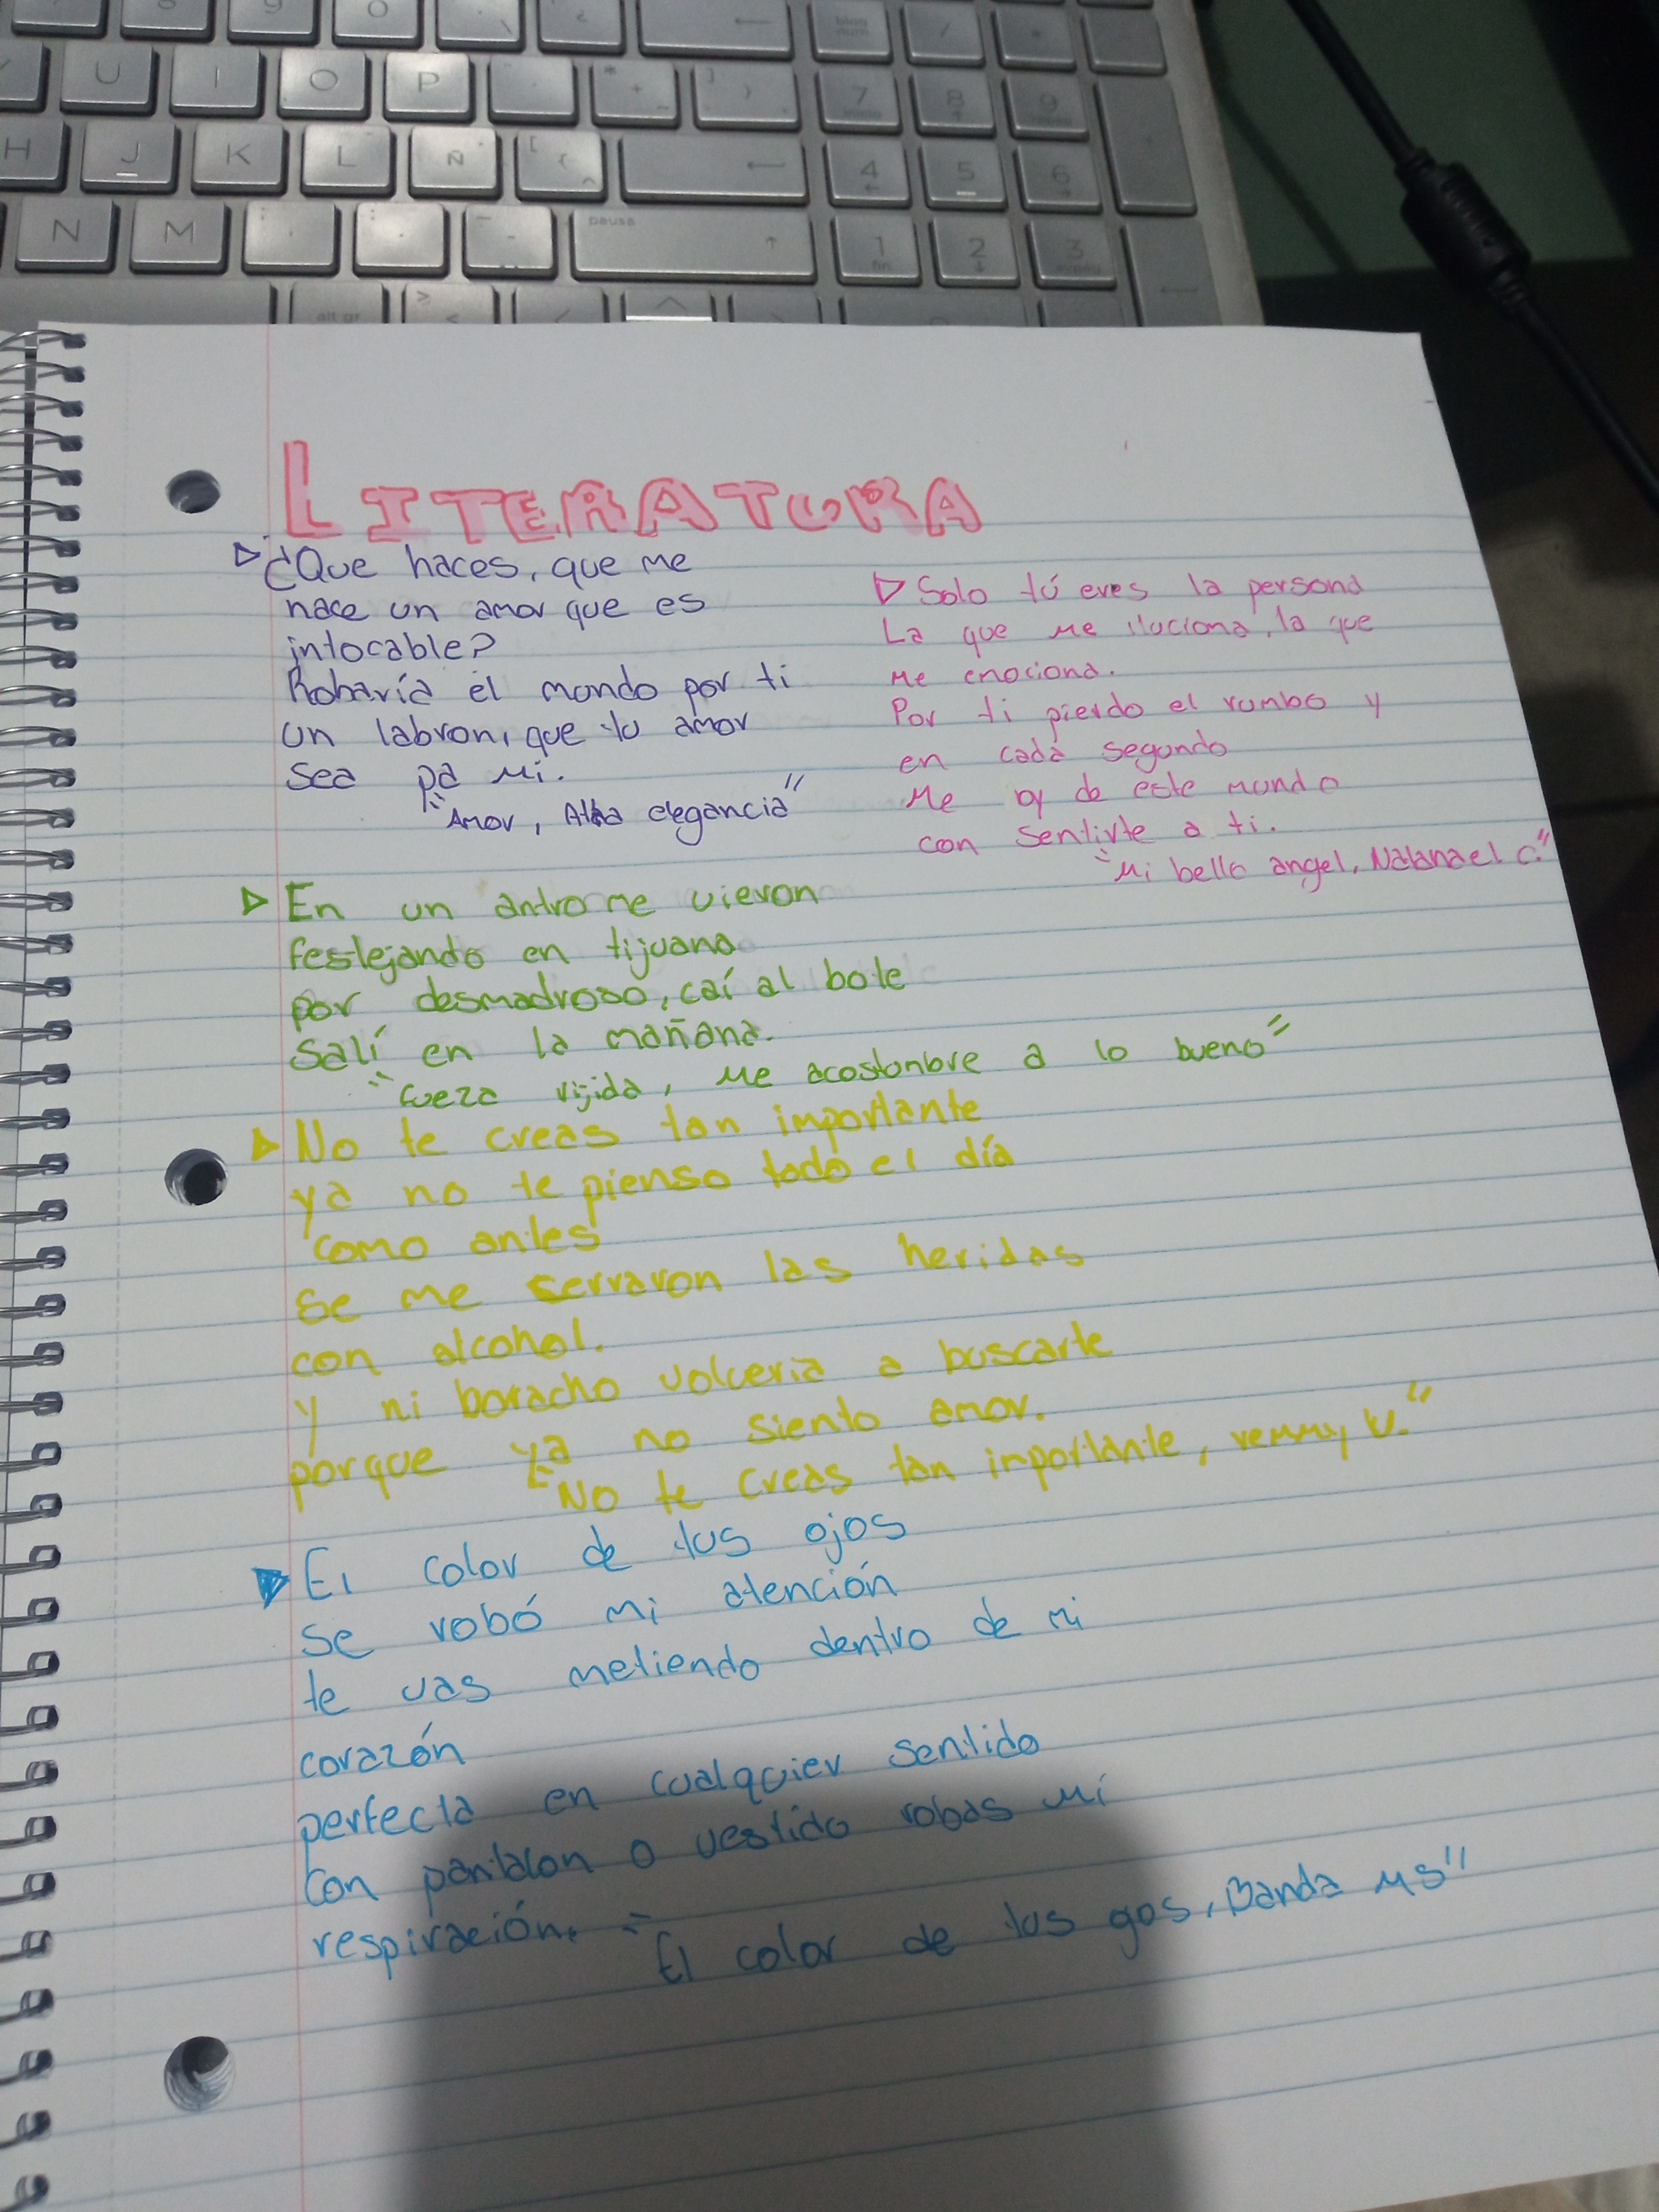 U I O P
7 inicio 8 9
H J K L Ñ
4 5 6
N M
pausa
1 fin 2 3
alt gr
LITERATURA
¿Que haces, que me
nace un amor que es
intocable?
Robaría el mundo por ti
un labron, que tu amor
sea pa mi.
"Amor, Alta elegancia"
Solo tú eres la persona
La que me iluciona, la que
me emociona.
Por ti pierdo el rumbo y
en cada segundo
Me de este mundo
con sentirte a ti.
"Mi bello angel, Natanael C."
En un antro me vieron
festejando en tijuana
por desmadroso, caí al bote
Salí en la mañana.
"Fueza rijida, Me acostonbre a lo bueno"
No te creas tan importante
ya no te pienso todo el día
como antes
Se me serraron las heridas
con alcohol.
Y ni boracho volveria a buscarte
porque ya no siento amor.
"No te creas tan importante, remmy V."
El color de tus ojos
se robó mi atención
te vas metiendo dentro de mi
corazón
perfecta en cualquier sentido
Con pantalon o vestido robas mi
respiración.
"El color de tus gos, Banda MS"